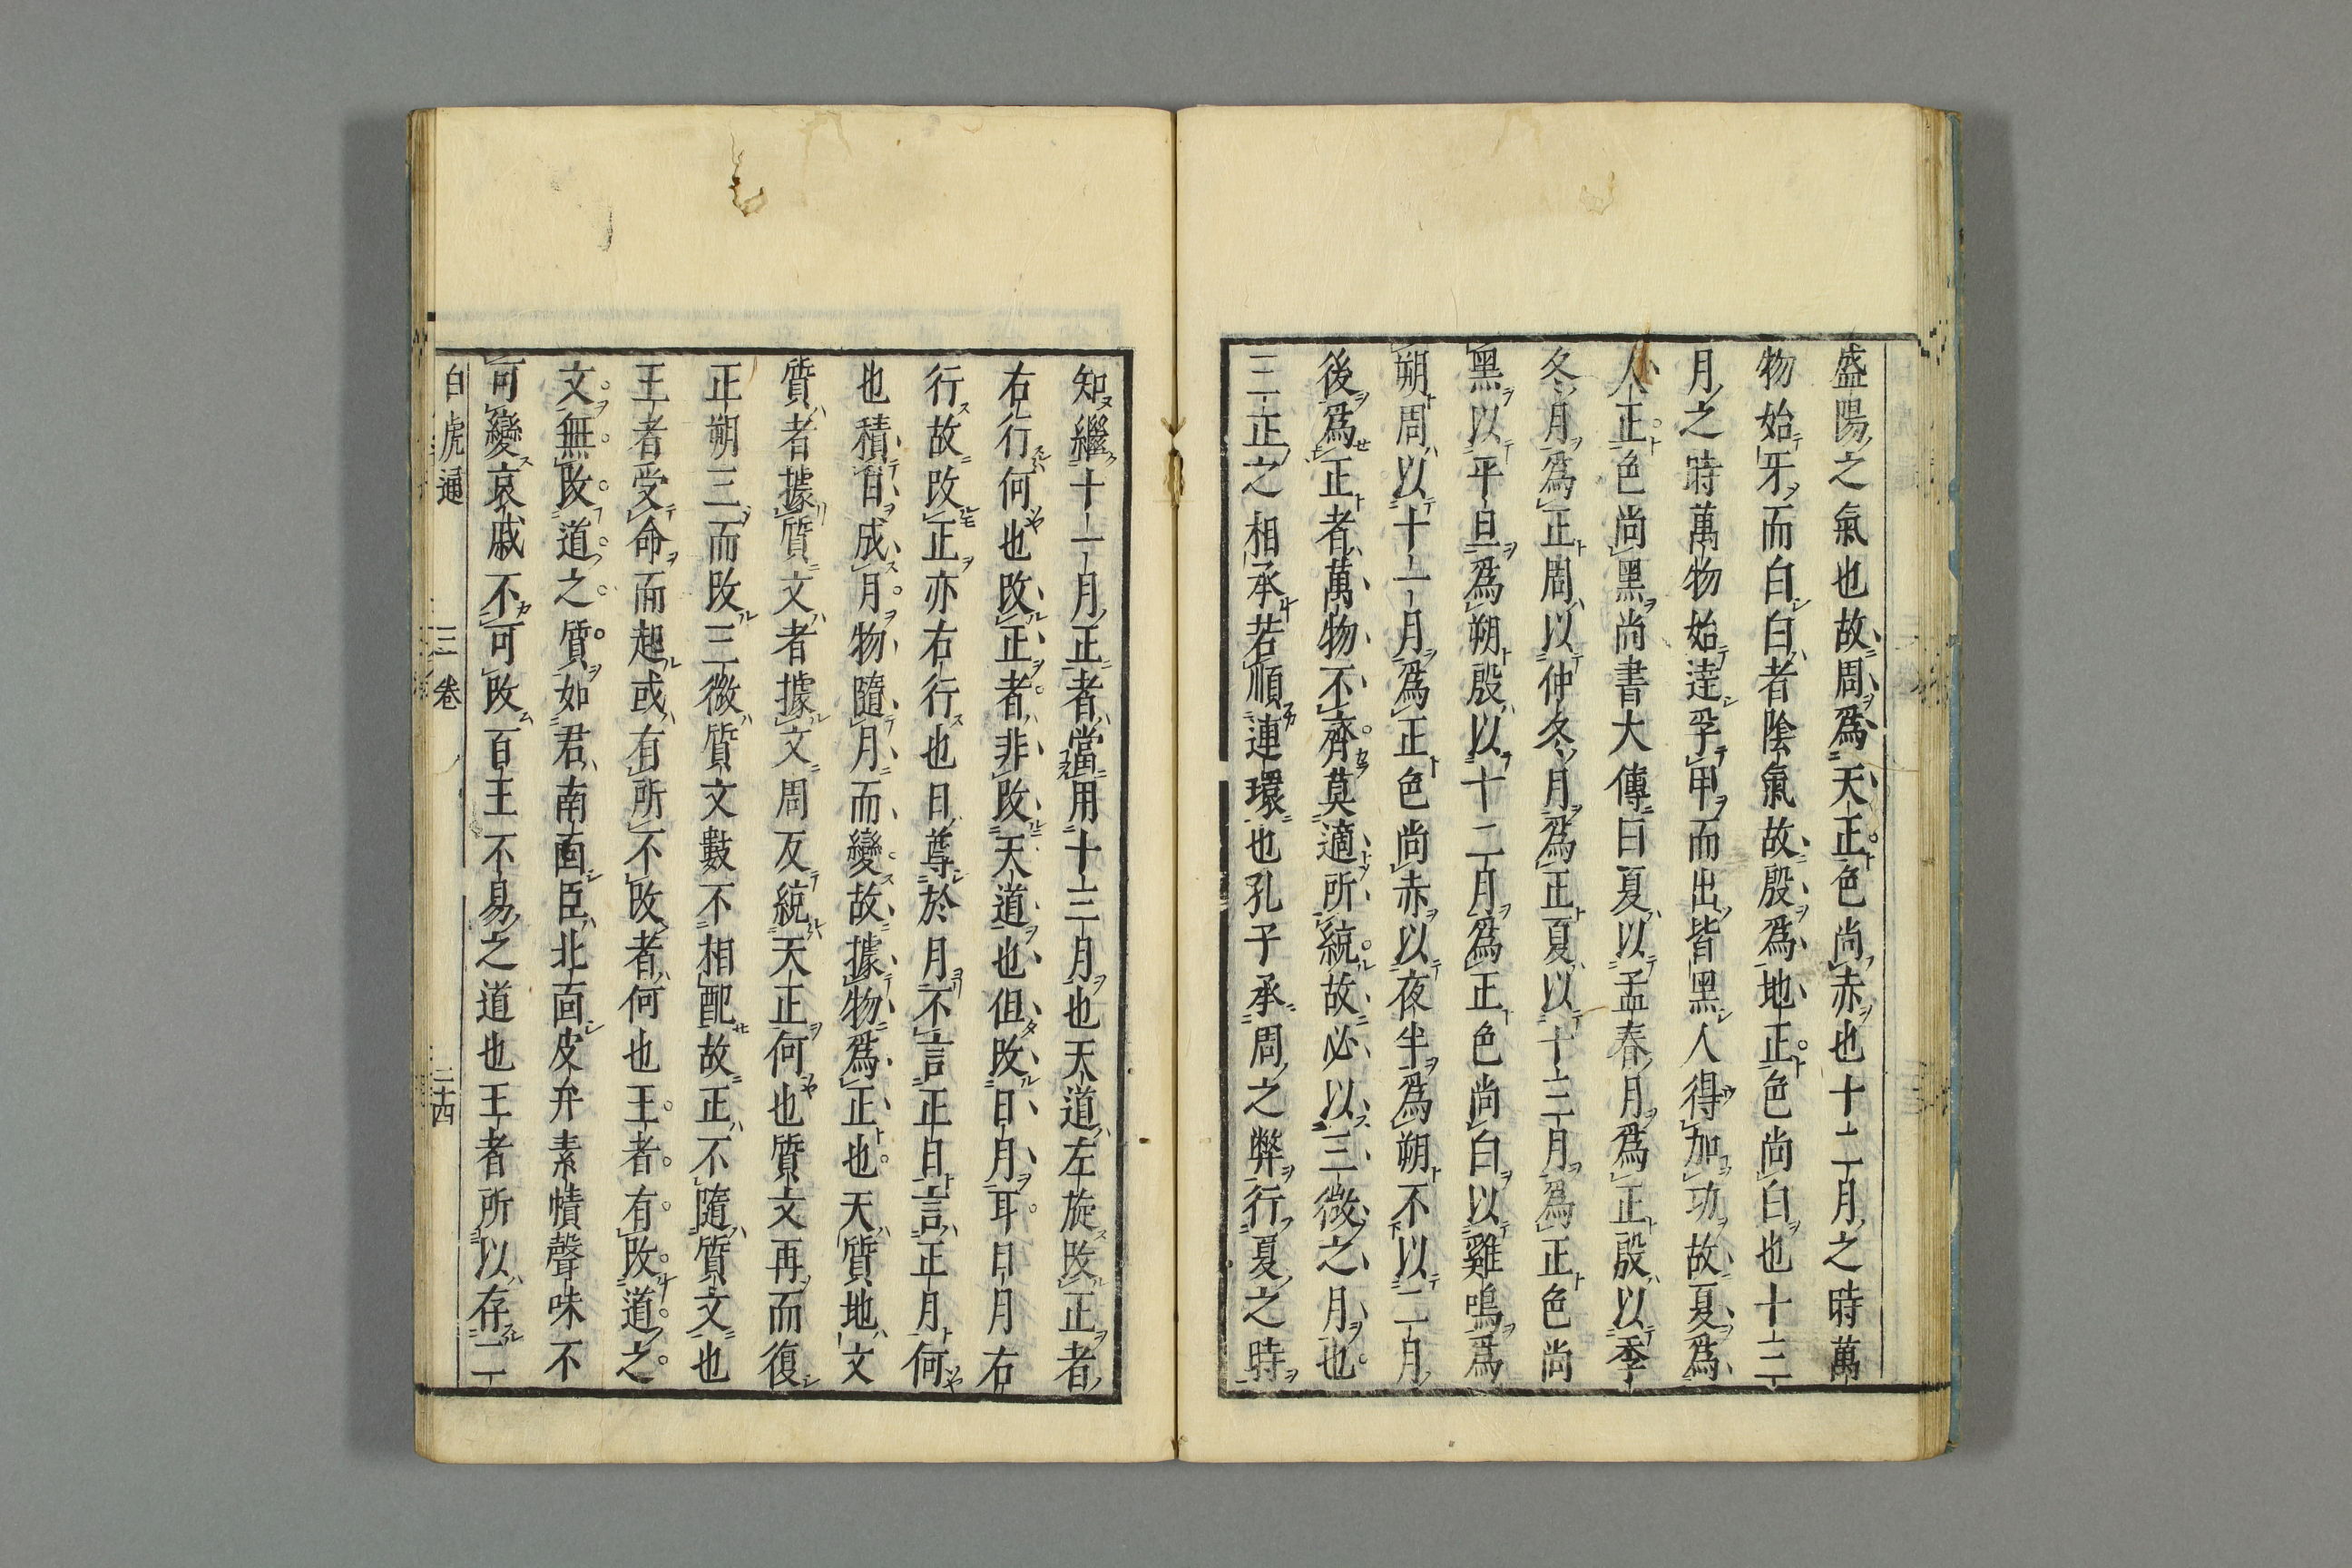 盛陽之氣也故周爲天正色尚赤也十二月之時萬
物始牙而白白者陰氣故殷爲地正色尚白也十三
月之時萬物始達孚甲而出皆黑人得加功故夏爲
人正色尚黑尚書大傳曰夏以孟春月爲正殷以季
冬月爲正周以仲冬月爲正夏以十三月爲正色尚
黑以平旦爲朔殷以十二月爲正色尚白以雞鳴爲
朔周以十一月爲正色尚赤以夜半爲朔不以二月
後爲正者萬物不齊莫適所統故必以三微之月也
三正之相承若順連環也孔子承周之弊行夏之時
知繼十一月正者當用十三月也天道左旋改正者
右行何也改正者非改天道也但改日月耳日月右
行故改正亦右行也日尊於月不言正日言正月何
也積日成月物隨月而變故據物爲正也天質地文
質者據質文者據文周反統天正何也質文再而復
正朔三而改三微質文數不相配故正不隨質文也
王者受命而起或有所不改者何也王者有改道之
文無改道之質如君南面臣北面皮弁素幘聲味不
可變哀戚不可改百王不易之道也王者所以存二
白虎通 三卷 三十四